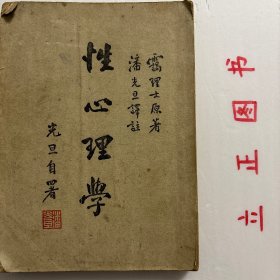 靄理士原著
潘光旦譯註
性心理學
光旦自署
立正图书